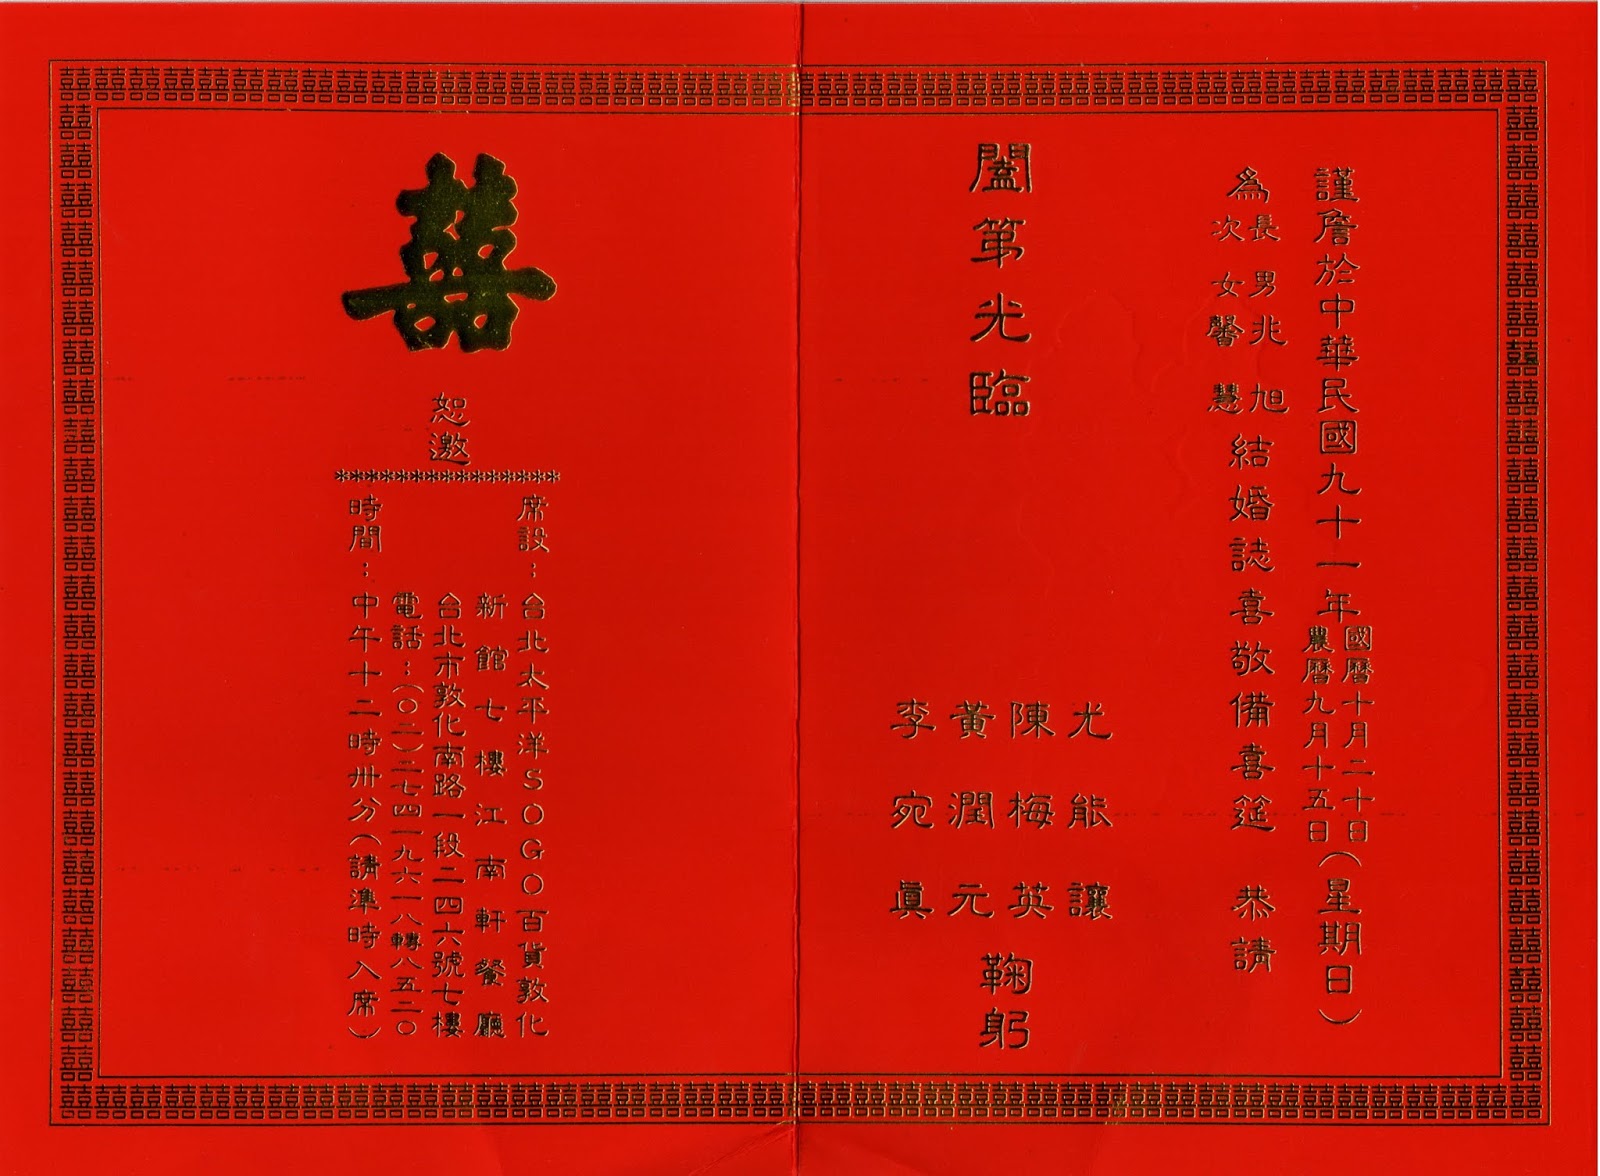 謹詹於中華民國九十一年
國曆十月二十日
農曆九月十五日
(星期日)
為
長男兆旭
次女馨慧
結婚誌喜敬備喜筵 恭請
闔第光臨
尤能讓
陳梅英
黃潤元
李宛眞
鞠躬
囍
恕邀
席設:台北太平洋SOGO百貨敦化
新館七樓江南軒餐廳
台北市敦化南路一段二四六號七樓
電話:(〇二)二七四一九六一八轉八五二〇
時間:中午十二時卅分(請準時入席)